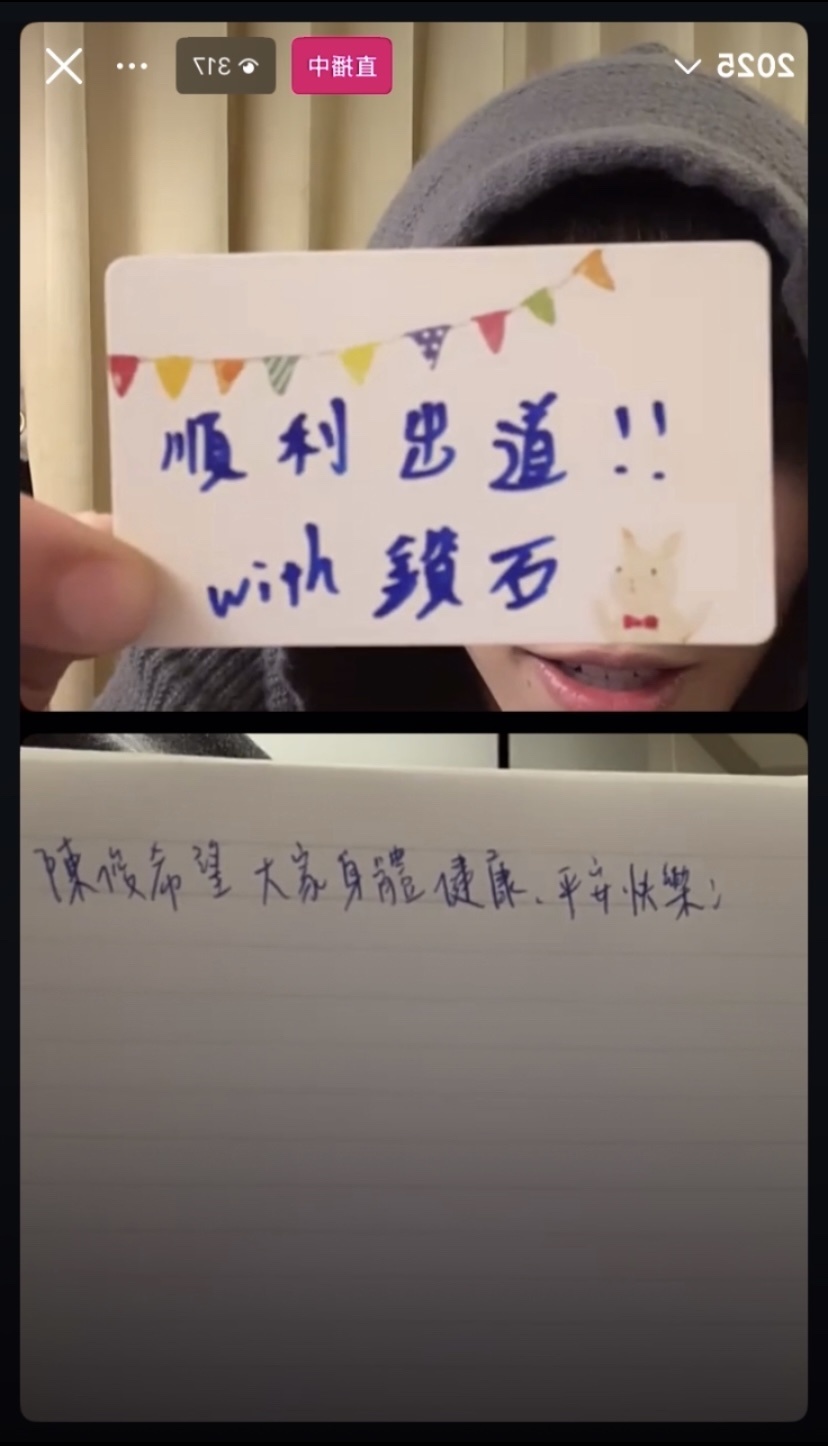 2025
直播中
317
順利出道!!
with 鑽石
陳俊希望大家身體健康、平安快樂